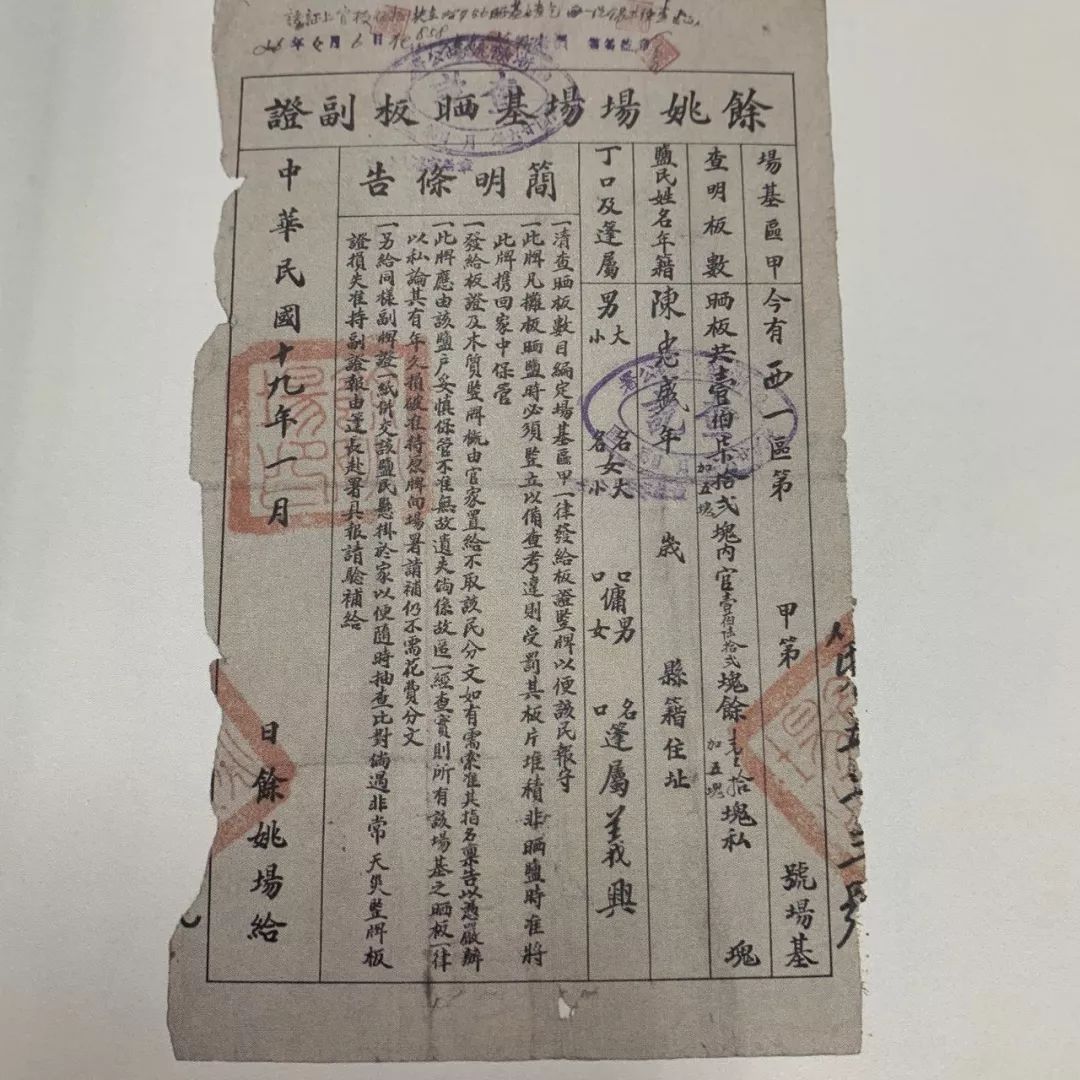 餘姚場場基晒板副證
場基區甲 今有西一區第 甲第 號場基
查明板數 晒板共壹佰柒拾弍塊內官壹佰陆拾弍塊餘 拾塊私 塊
加五塊
加五塊
鹽民姓名年籍 陳忠盛年 歲 縣籍住址
丁口及篷屬 男大小 名名 女大小 口口 傭男女 名口 篷屬 義興
簡明條告
一清查晒板數目編定場基區甲一律發給板證豎牌以便該民報守
一此牌凡攤板晒鹽時必須豎立以備查考違則受罰其板片堆積非晒鹽時准將
此牌攜回家中保管
一發給板證及木質豎牌概由官家置給不取該民分文如有需索准其指名稟告以憑嚴辦
一此牌應由該鹽户妥慎保管不准無故遺失倘係故區一經查實則所有該場基之晒板一律
以私論其有年久損破准持原牌向場署請補仍不需花費分文
一另給同樣副牌證一紙併交該鹽民懸掛於家以便隨時抽查比對倘遇非常天災豎牌板
證損失准持副證報由篷長赴署具報請驗補給
中華民國十九年一月 日餘姚場給